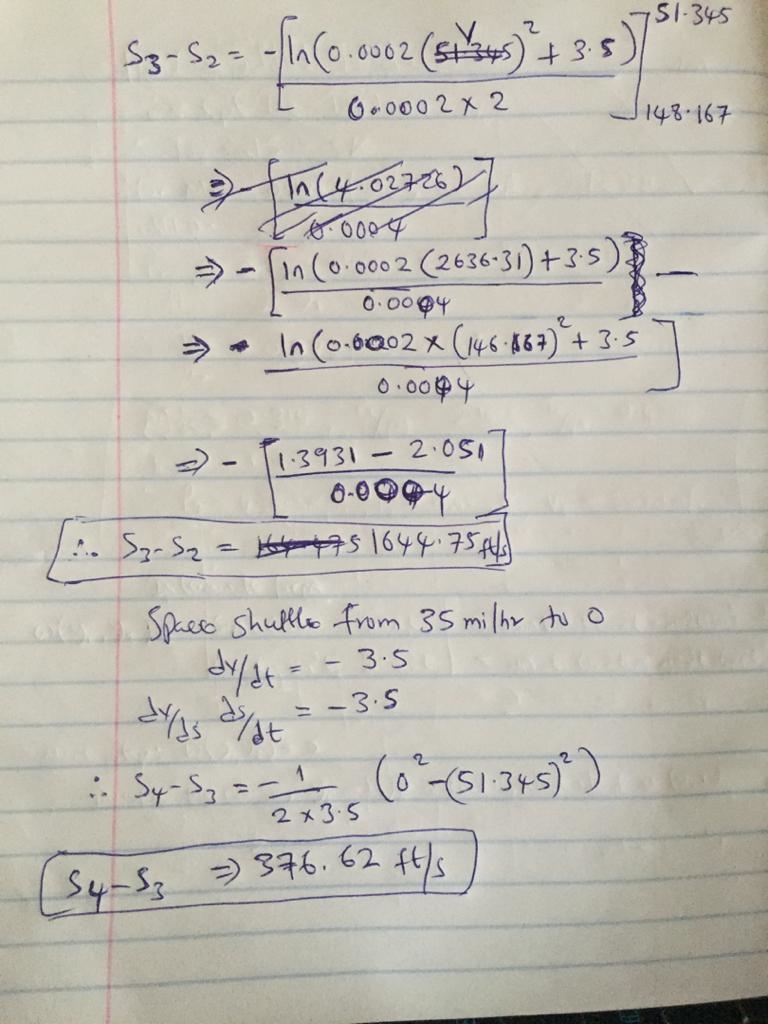 S3-S2 = -[ln(0.0002(V)² + 3.5)/0.0002 x 2] 51.345 148.167
⇒ -[ln(4.02726)/0.0004]
⇒ -[ln(0.0002(2636.31)+3.5)/0.0004 -
⇒ ln(0.0002 x (146.167)² + 3.5/0.0044]
⇒ -[1.3931 - 2.051/0.0004]
∴ S3-S2 = 1644.75 ft/s
Space shuttle from 35 mi/hr to 0
dv/dt = - 3.5
dv/ds ds/dt = -3.5
∴ S4-S3 = -1/2 x 3.5 (0² -(51.345)²)
S4-S3 ⇒ 376.62 ft/s